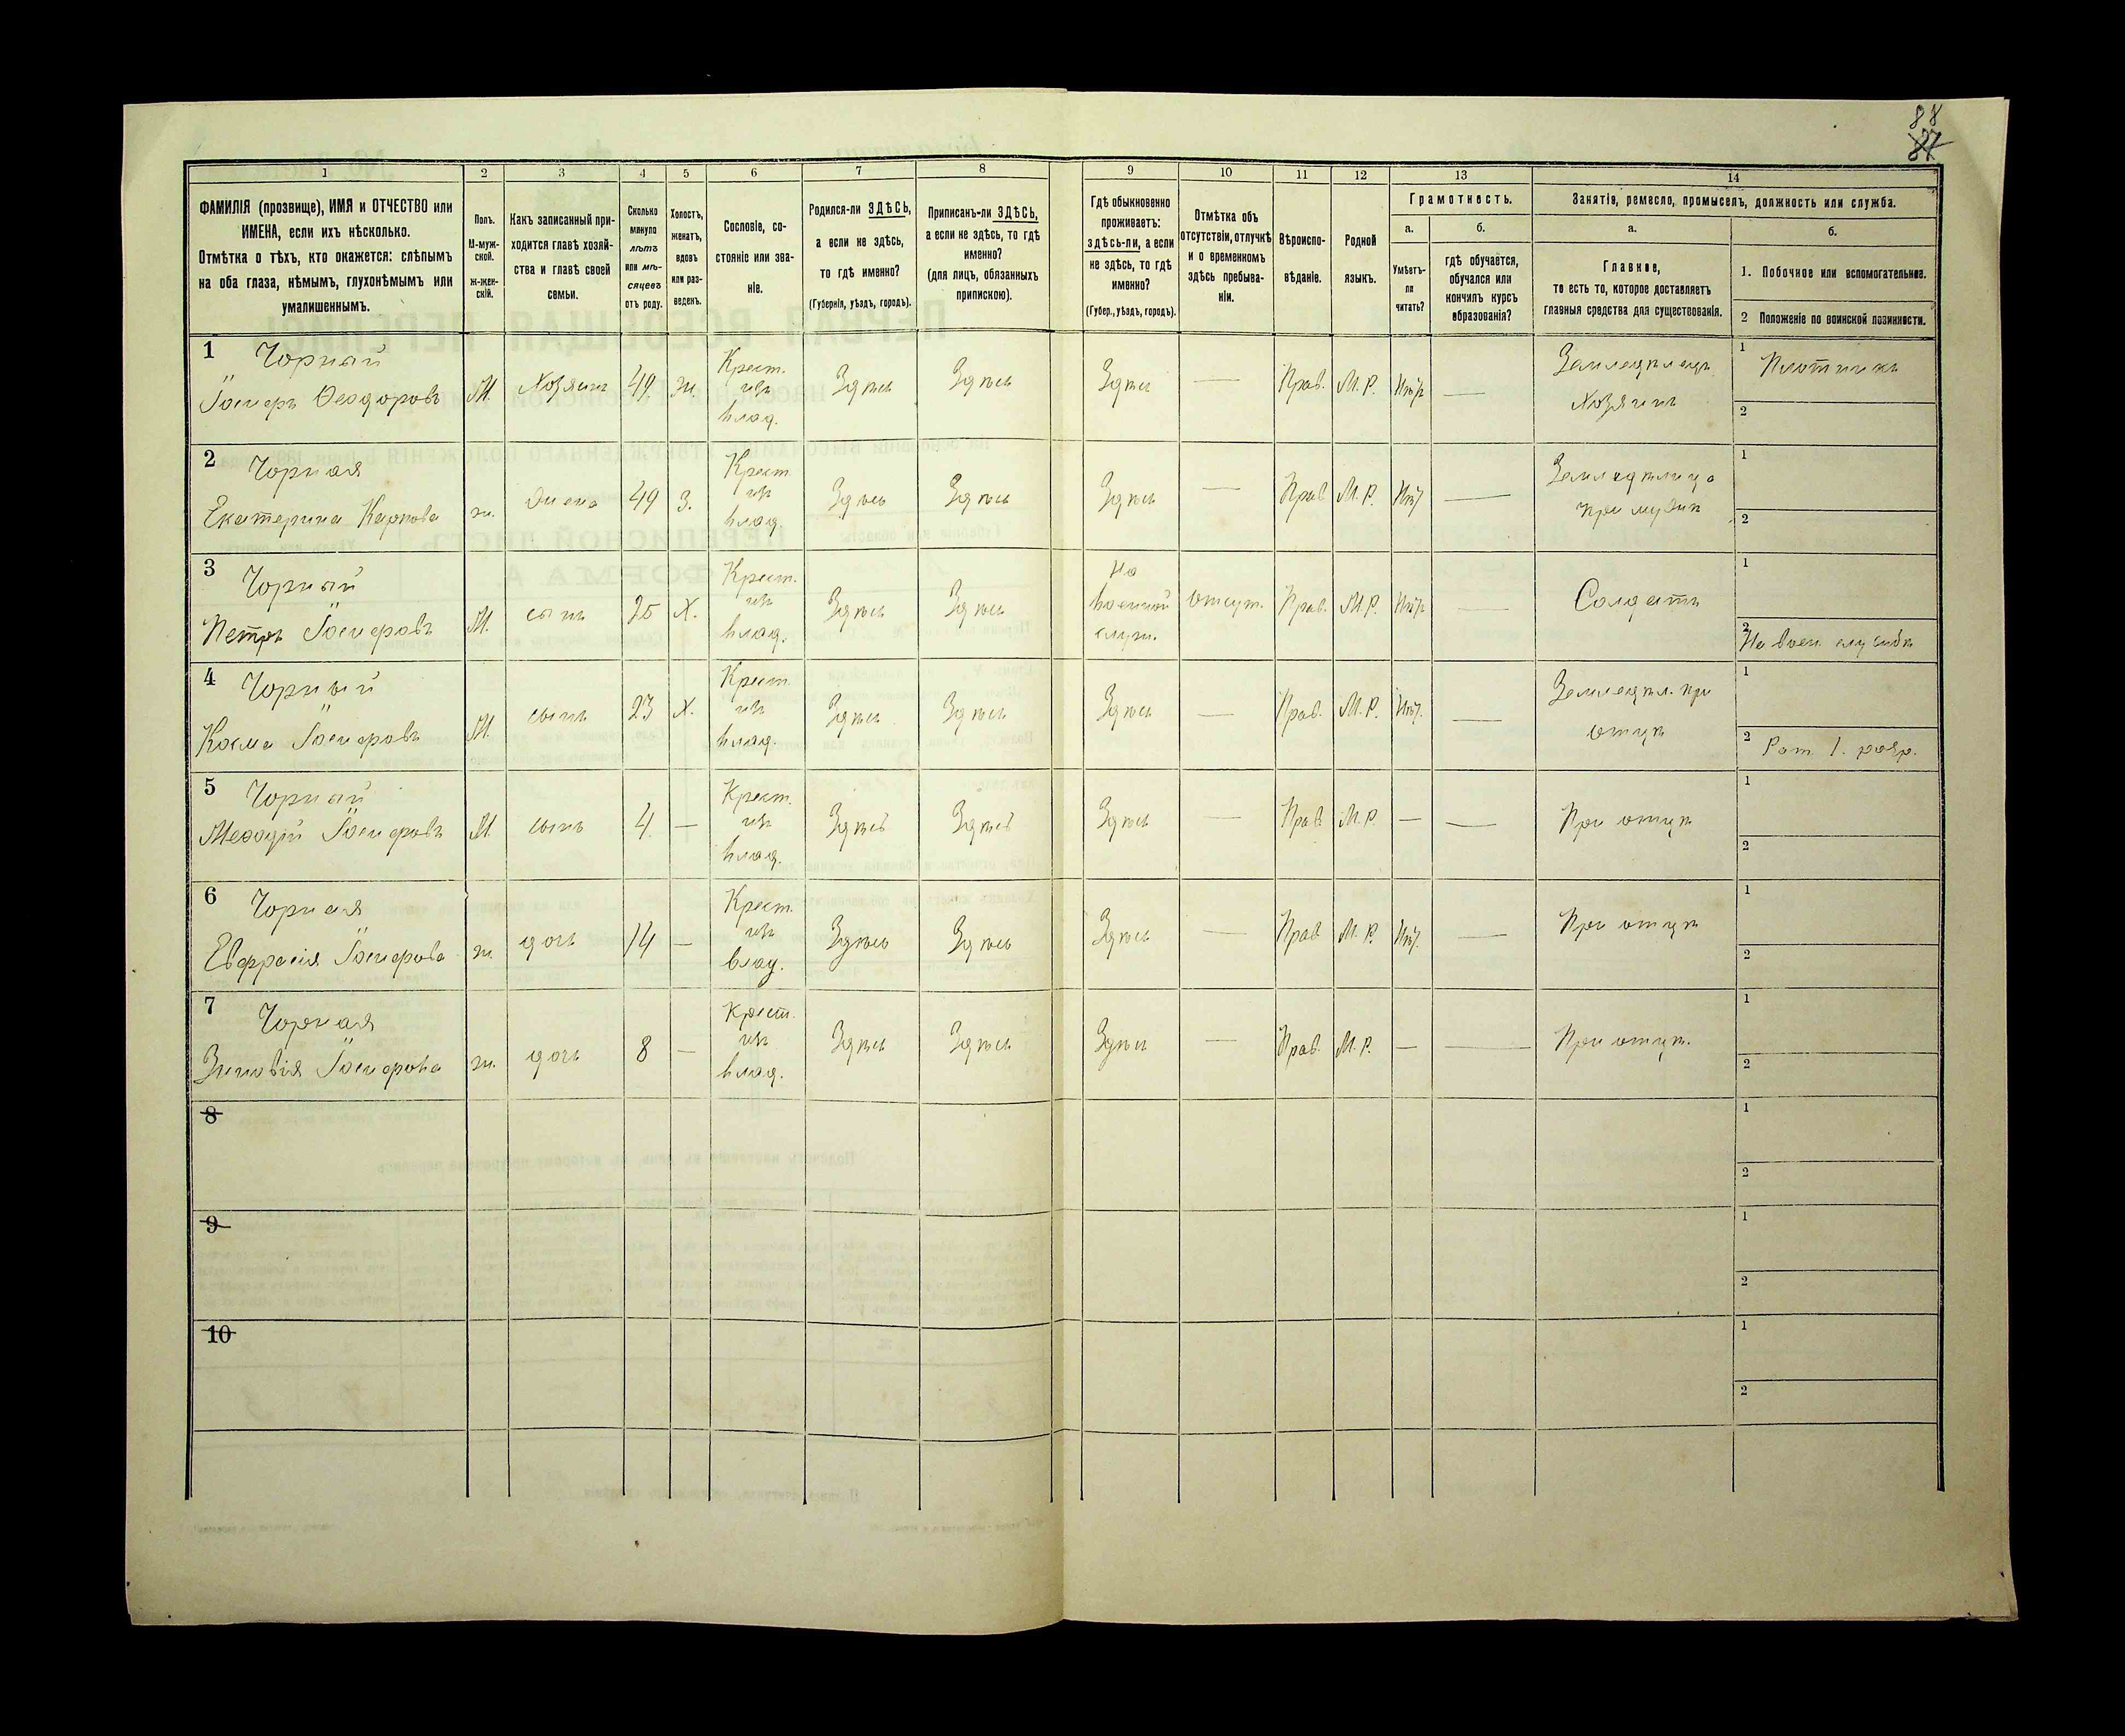 88
1 2 3 4 5 6 7 8 9 10 11 12 13 14
ФАМИЛІЯ (прозвище), ИМЯ и ОТЧЕСТВО или
ИМЕНА, если ихъ нѣсколько.
Отмѣтка о тѣхъ, кто окажется: слѣпымъ
на оба глаза, нѣмымъ, глухонѣмымъ или
умалишеннымъ.
Полъ.
М-муж-
ской.
ж-жен-
скій.
Какъ записанный при-
ходится главѣ хозяй-
ства и главѣ своей
семьи.
Сколько
минуло
лѣтъ
или мѣ-
сяцевъ
отъ роду.
Холостъ,
женатъ,
вдовъ
или раз-
веденъ.
Сословіе, со-
стояніе или зва-
ніе.
Родился-ли ЗДѢСЬ,
а если не здѣсь,
то гдѣ именно?
(Губернія, уѣздъ, городъ).
Приписанъ-ли ЗДѢСЬ,
а если не здѣсь, то гдѣ
именно?
(для лицъ, обязанныхъ
припискою).
Гдѣ обыкновенно
проживаетъ:
здѣсь-ли, а если
не здѣсь, то гдѣ
именно?
(Губер., уѣздъ, городъ).
Отмѣтка объ
отсутствіи, отлучкѣ
и о временномъ
здѣсь пребыва-
ніи.
Вѣроиспо-
вѣданіе.
Родной
языкъ.
Грамотность.
а.
Умѣетъ-
ли
читать?
б.
гдѣ обучается,
обучался или
кончилъ курсъ
образованія?
Занятіе, ремесло, промыселъ, должность или служба.
а.
Главное,
то есть то, которое доставляетъ
главныя средства для существованія.
б.
1. Побочное или вспомогательное.
2 Положеніе по воинской повинности.
1 Чорный
Іосифъ Ѳеодоровъ М. Хозяинъ 49 ж. Крест. изъ влад. Здѣсь Здѣсь Здѣсь — Прав. М. Р. Нѣтъ —
Земледѣлецъ
Хозяинъ
1 Плотникъ
2
2 Чорная
Екатерина Карпова ж. Жена 49 З. Крест. изъ влад. Здѣсь Здѣсь Здѣсь — Прав М. Р. Нѣт —
Земледѣлица
при мужѣ
1
2
3 Чорный
Петръ Іосифовъ М. сынъ 25 Х. Крест. изъ влад. Здѣсь Здѣсь На военной служ. Отсут. Прав. М. Р. Нѣтъ —
Солдатъ
1
2 На воен. службѣ
4 Чорный
Косма Іосифовъ М. сынъ 23 Х. Крест. изъ влад. Здѣсь Здѣсь Здѣсь — Прав. М. Р. Нѣт. —
Земледѣл. при
отцѣ
1
2 Рат. 1. разр.
5 Чорный
Меѳодій Іосифовъ М. сынъ 4. — Крест. изъ влад. Здѣсь Здѣсь Здѣсь — Прав. М. Р. — —
При отцѣ
1
2
6 Чорная
Евфрасія Іосифова ж. дочь 14 — Крест. изъ влад. Здѣсь Здѣсь Здѣсь — Прав М. Р. Нѣт. —
При отцѣ
1
2
7 Чорная
Зиновія Іосифова ж. дочь 8 — Крест. изъ влад. Здѣсь Здѣсь Здѣсь — Прав. М. Р. — —
При отцѣ.
1
2
8
1
2
9
1
2
10
1
2